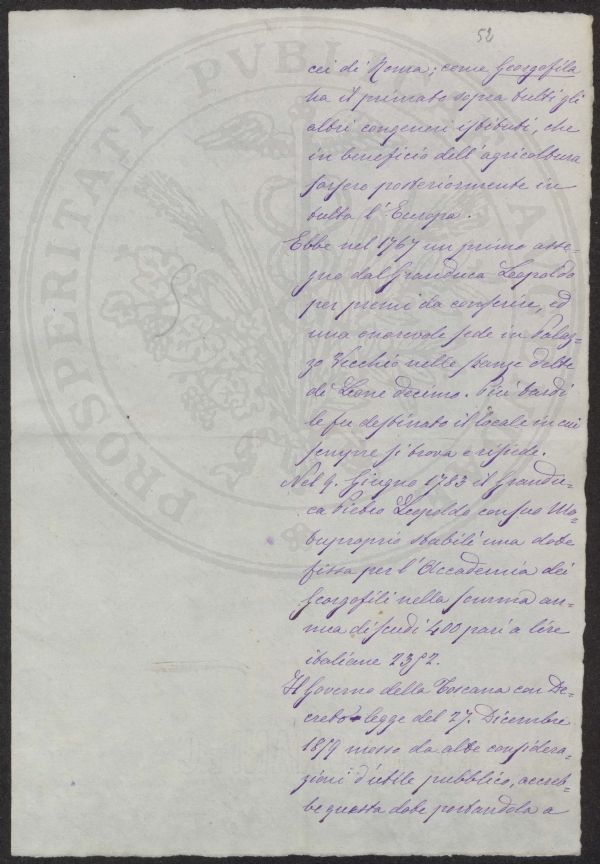 52
PROSPERITATI PVBLI
cei di Roma; come Georgofila
ha il primato sopra tutti gli
altri congeneri istituti, che
in beneficio dell'agricoltura
sorsero posteriormente in
tutta l'Europa.
Ebbe nel 1767 un primo asse=
gno dal Granduca Leopoldo
per premi da conferire, ed
una onorevole sede in Palaz=
zo Vecchio nelle stanze dette
di Leone decimo. Più tardi
le fu destinato il locale in cui
sempre si trova e risiede.
Nel 9. Giugno 1783 il Grandu=
ca Pietro Leopoldo con suo Mo=
tuproprio stabilì una dote
fissa per l'Accademia dei
Georgofili nella somma an=
nua di scudi 400 pari a lire
italiane 2352.
Il Governo della Toscana con De=
creto legge del 27. Dicembre
1859 mosso da alte considera=
zioni d'utile pubblico, accreb=
be questa dote portandola a